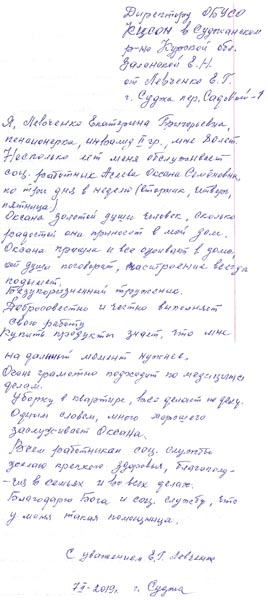 Директору ОБУСО
КЦСОН в Суджанском
р-не Курской обл.
Залонской Е.Н.
от Левченко Е.Г.
г. Суджа пер. Садовый-1
Я, Левченко Екатерина Григорьевна,
пенсионерка, инвалид II гр., мне 80 лет.
Несколько лет меня обслуживает
соц. работник Оксана Семёновна,
по три дня в неделю (вторник, четверг,
пятница)
Оксана золотой души человек, сколько
радостей она приносит в мой дом.
Оксана пришла и все оживает в доме,
от души поговорит, настроение всегда
поднимет.
Безукоризненный труженик.
Добросовестно и честно выполняет
свою работу
Купить продукты знает, что мне
на данный момент нужнее.
Очень грамотно подходит по медицинским
делам.
Уборку в квартире, все делает на деу.
Одним словом, много хорошего
заслуживает Оксана.
Всем работникам соц. службы
желаю крепкого здоровья, благополу-
чия в семьях и во всех делах.
Благодарю Бога и соц. службу, что
у меня такая помощница.
С уважением Е.Г. Левченко
2019г. г. Суджа